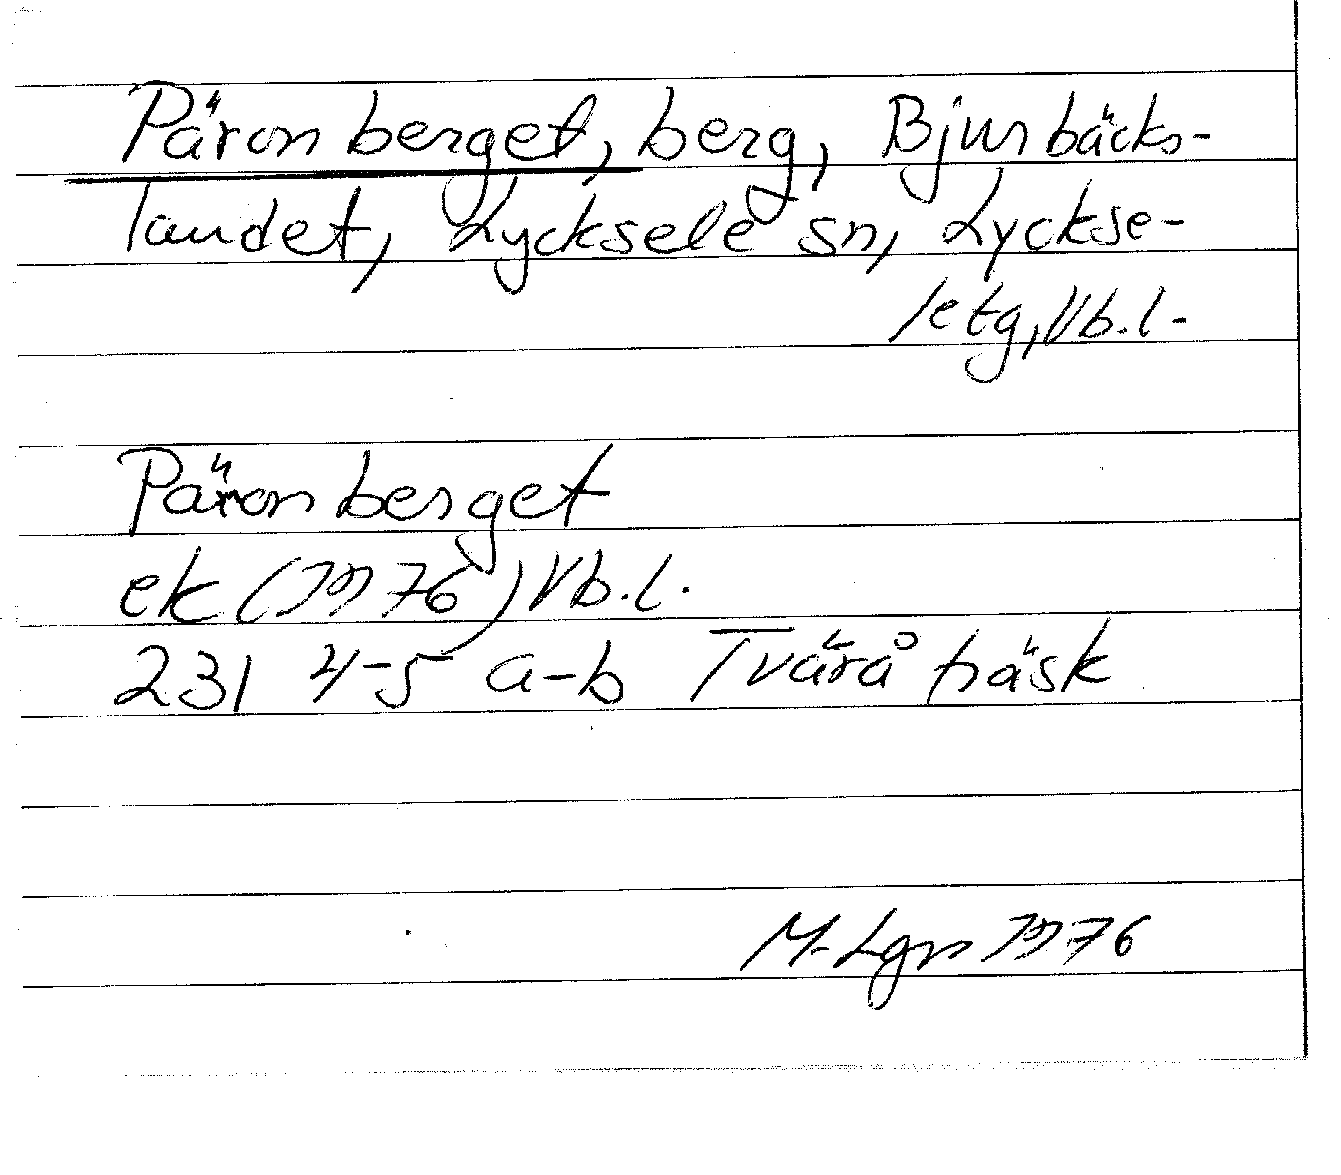 Päronberget, berg, Bjurbäcks-
landet, Lycksele sn, Lyckse-
le tg, Vb.l.
Päronberget
ek (1976) Vb.l.
231 4-5 a-b Tväråträsk
M. Lgn 1976